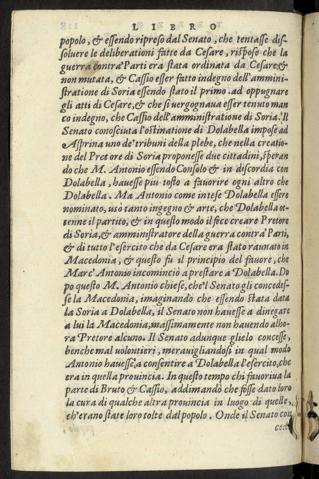 LIBRO
popolo, & essendo ripreso dal Senato, che tentasse dis-
soluere le deliberationi fatte da Cesare, rispose che la
guerra contra Parti era stata ordinata da Cesare &
non mutata, & Cassio esser fatto indegno dell'ammini-
stratione di Soria essendo stato il primo ad oppugnare
gli atti di Cesare, & che si uergognaua esser tenuto man
co indegno, che Cassio dell'amministratione di Soria. Il
Senato conosciuta l'ostinatione di Dolabella impose ad
Asprina uno de' tribuni della plebe, che nella creatio-
ne del Pretore di Soria proponesse due cittadini, speran
do che M. Antonio essendo Consolo & in discordia con
Dolabella, hauesse piu tosto a fauorire ogni altro che
Dolabella. Ma Antonio come intese Dolabella essere
nominato, usò tanto ingegno & arte, che Dolabella ot-
tenne il partito, & in questo modo il fece creare Pretore
di Soria, & amministratore della guerra contra Parti,
& di tutto l'esercito che da Cesare era stato raunato in
Macedonia, & questo fu il principio del fauore, che
Marc'Antonio incominciò a prestare a Dolabella. Do
po questo M. Antonio chiese, che'l Senato gli concedes-
se la Macedonia, imaginando che essendo stata data
la Soria a Dolabella, il Senato non hauesse a dinegare
a lui la Macedonia, massimamente non hauendo alho-
ra Pretore alcuno. Il Senato adunque glielo concesse,
benche mal uolontieri, merauigliandosi in qual modo
Antonio hauesse, a consentire a Dolabella l'esercito, che
era in quella prouincia. In questo tempo chi fauoriua la
parte di Bruto & Cassio, addimando che fosse dato loro
la cura di qualche altra prouincia in luogo di quelle,
ch'erano state loro tolte dal popolo. Onde il Senato con
cede